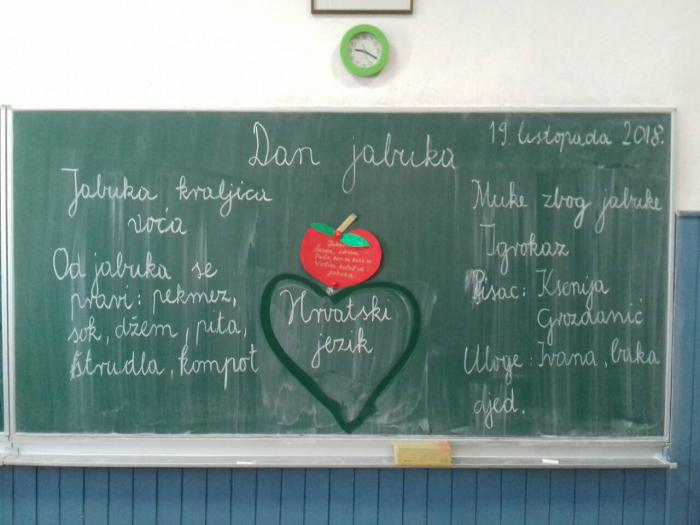 Dan jabuka
19. listopada 2018.
Jabuka kraljica
voća
Od jabuka se
pravi: pekmez,
sok, džem, pita,
štrudla, kompot
Hrvatski
jezik
Muke zbog jabuke
Igrokaz
Pisac: Ksenija
Grozdanić
Uloge: Ivana, baka
djed.